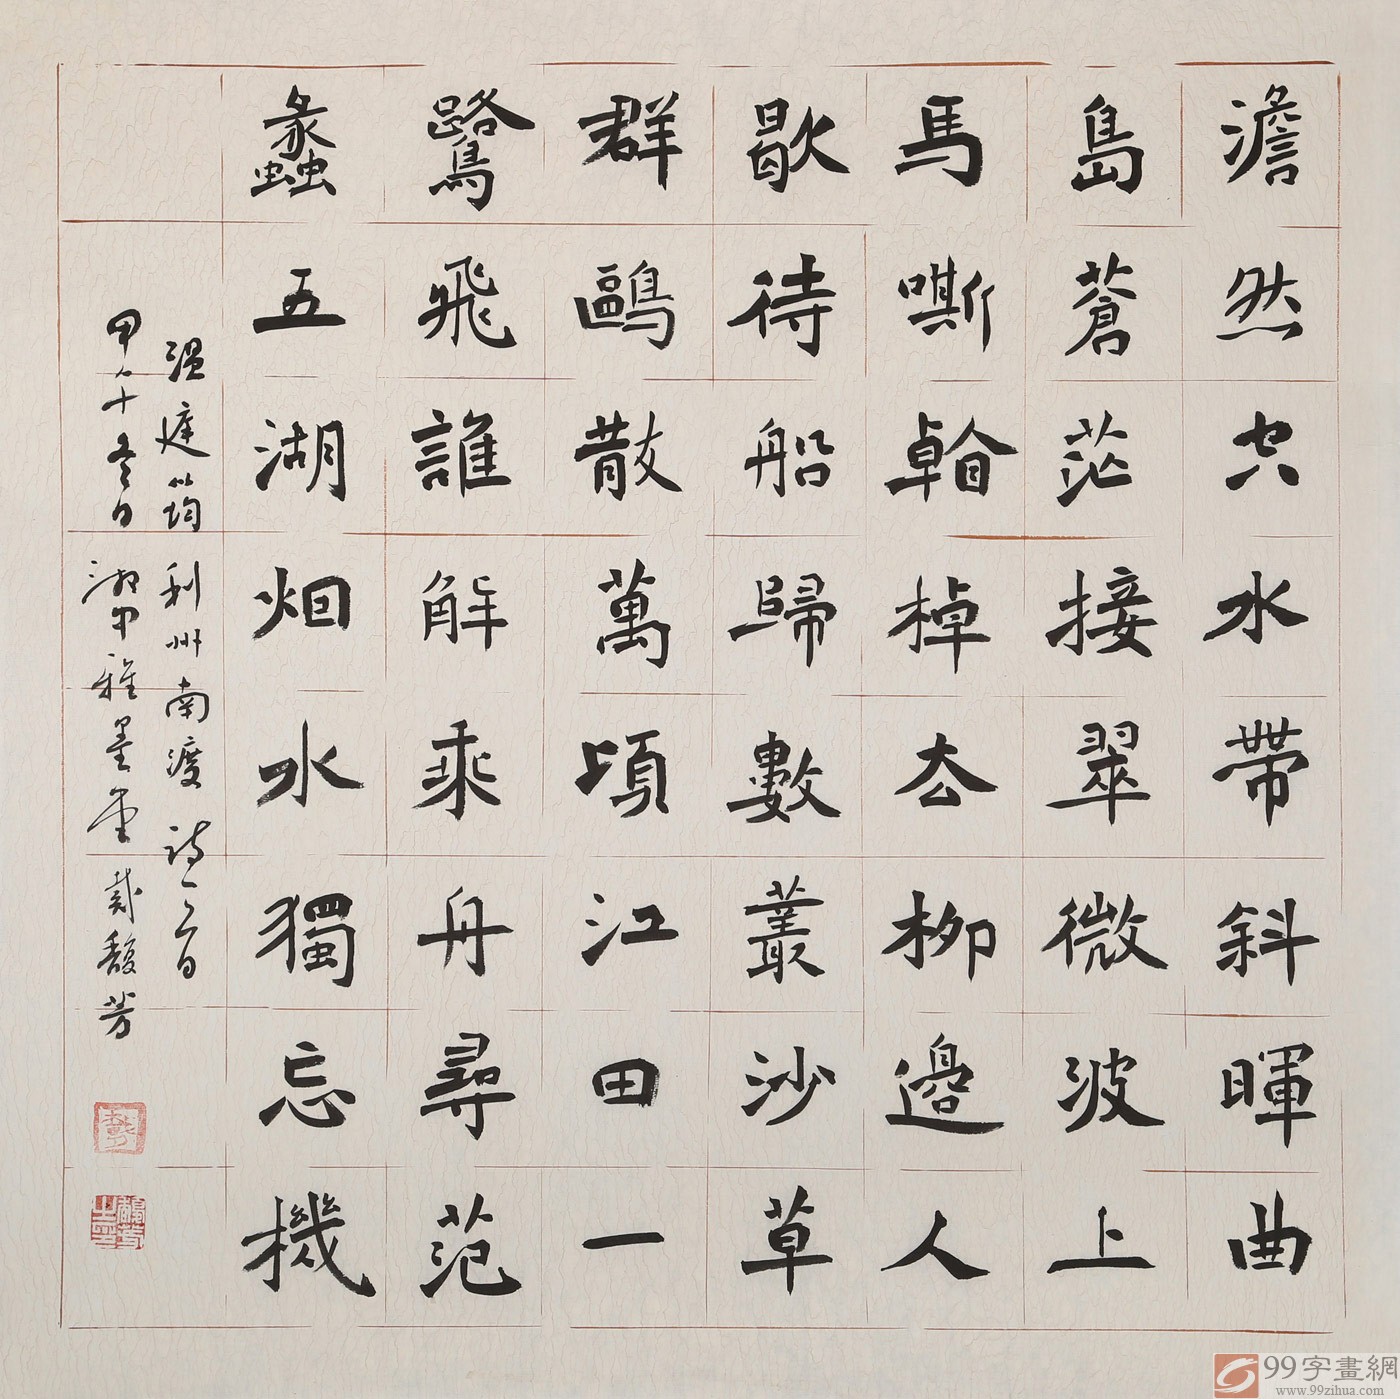 澹然空水帶斜暉曲
島蒼茫接翠微波上
馬嘶看棹去柳邊人
歇待船歸數叢沙草
群鷗散萬頃江田一
鷺飛誰解乘舟尋范
蠡五湖烟水獨忘機
温庭筠利州南渡詩一首
甲午冬日湘中雅墨堂戴馥芳
99字畫網
www.99zihua.com